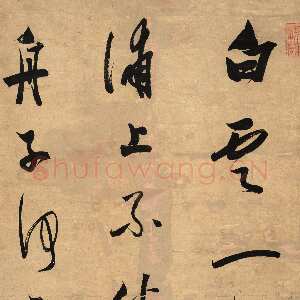 白雲一
浦上不
舟子何
shufawang.CN